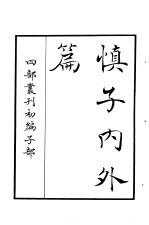 慎子內外
篇
四部叢刊初編子部